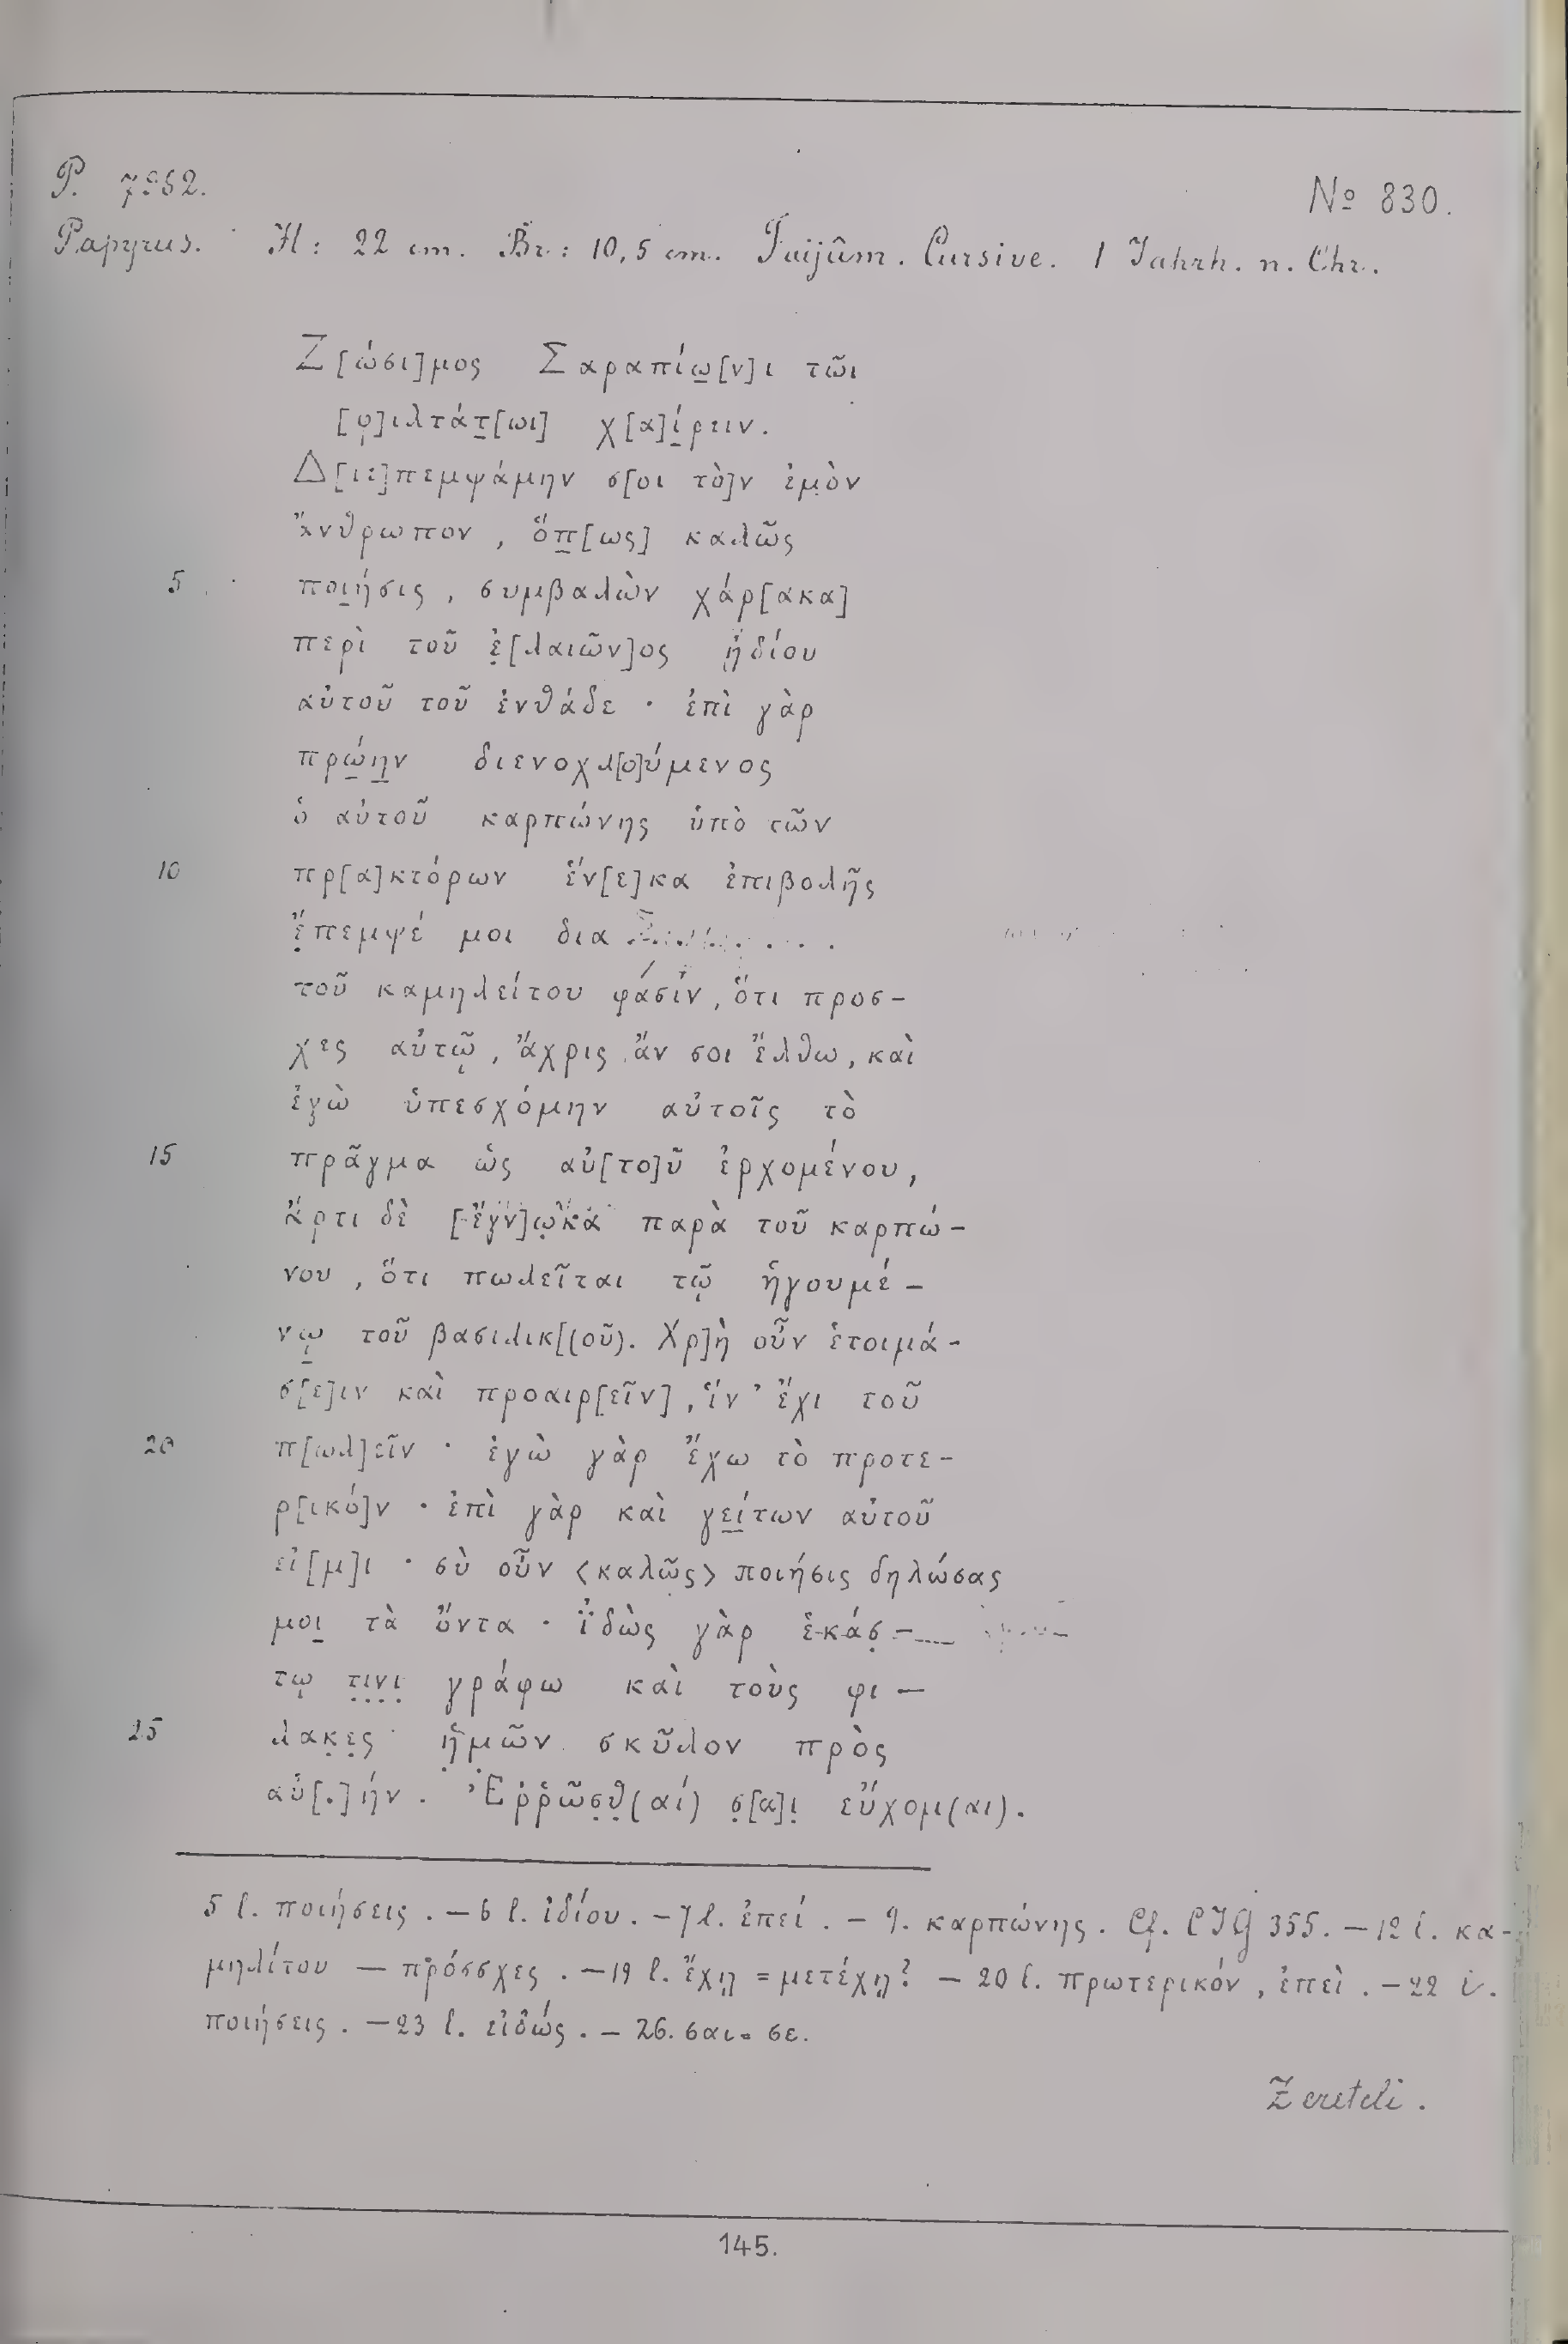 P. 7982.
No 830.
Papyrus. H: 22 cm. Br: 10,5 cm. Faijûm. Cursive. 1 Jahrh. n. Chr.
Ζ[ώσι]μος Σαραπίω̣[ν]ι τῶι
[φ]ιλτάτ̣[ωι] χ[α]ί̣ρειν.
Δ[ιε]πεμψάμην σ[οι τὸ]ν ἐμὸν
ἄνθρωπον, ὅπ̣[ως] καλῶς
5 ποι̣ήσις, συμβαλὼν χάρ[ακα]
περὶ τοῦ ἐ̣[λαιῶν]ος ἠ̣δίου
αὐτοῦ τοῦ ἐνθάδε · ἐπὶ γὰρ
πρώ̣η̣ν διενοχλ[ο]ύμενος
ὁ αὐτοῦ καρπώνης ὑπὸ τῶν
10 πρ[α]κτόρων ἕν[ε]κα ἐπιβολῆς
ἔ̣πεμψέ μοι δια . . . .
τοῦ καμηλείτου φάσιν, ὅτι προσ-
χες αὐτῷ, ἄχρις ἄν σοι ἔλθω, καὶ
ἐγὼ ὑπεσχόμην αὐτοῖς τὸ
15 πρᾶγμα ὡς αὐ[το]ῦ ἐρχομένου,
ἄρτι δὲ [ἔγν]ω̣κα παρὰ τοῦ καρπώ-
νου, ὅτι πωλεῖται τῷ ἡγουμέ-
νῳ̣ τοῦ βασιλικ[(οῦ). Χρ]ὴ οὖν ἑτοιμά-
σ[ε]ιν καὶ προαιρ[εῖν], ἵν' ἔχι τοῦ
20 π[ωλ]εῖν · ἐγὼ γὰρ ἔχω τὸ προτε-
ρ[ικό]ν · ἐπὶ γὰρ καὶ γε̣ί̣των αὐτοῦ
εἰ[μ]ι · σὺ οὖν <καλῶς> ποιήσις δηλώσας
μοι̣ τὰ ὄντα · ἰ̈δὼς γὰρ ἑκάσ̣-
τῳ τ̣ι̣ν̣ι̣ γράφω καὶ τοὺς φι-
25 λακ̣ε̣ς ἡ̣μῶν σκῦλον πρὸς
αὐ[.]ήν. Ἐῤῥῶσ̣θ̣(αί) σ̣[α]ι̣ εὔχομ(αι).
5 l. ποιήσεις. — 6 l. ἰδίου. — 7 l. ἐπεί. — 9. καρπώνης. Cf. CIG 355. — 12 l. κα-
μηλίτου — πρόσσχες. — 19 l. ἔχῃ = μετέχῃ? — 20 l. πρωτερικόν, ἐπεὶ. — 22 l.
ποιήσεις. — 23 l. εἰδώς. — 26. σαι = σε.
Zereteli.
145.